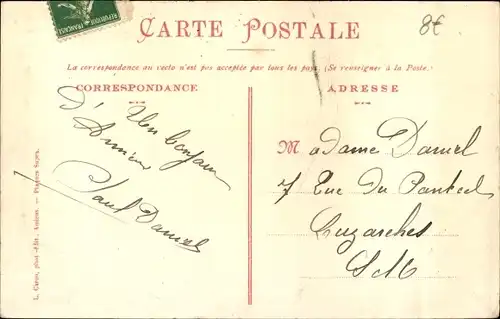 RÉPUBLIQUE FRANÇAISE
8€
CARTE POSTALE
La correspondance au verso n'est pas acceptée par tous les pays. (Se renseigner à la Poste.)
CORRESPONDANCE
ADRESSE
Un bonjour
d'Amiens
Paul Daniel
Madame Daniel
7 Rue du
Luzarches
S&O
L. Caron, phot.-édit., Amiens. —